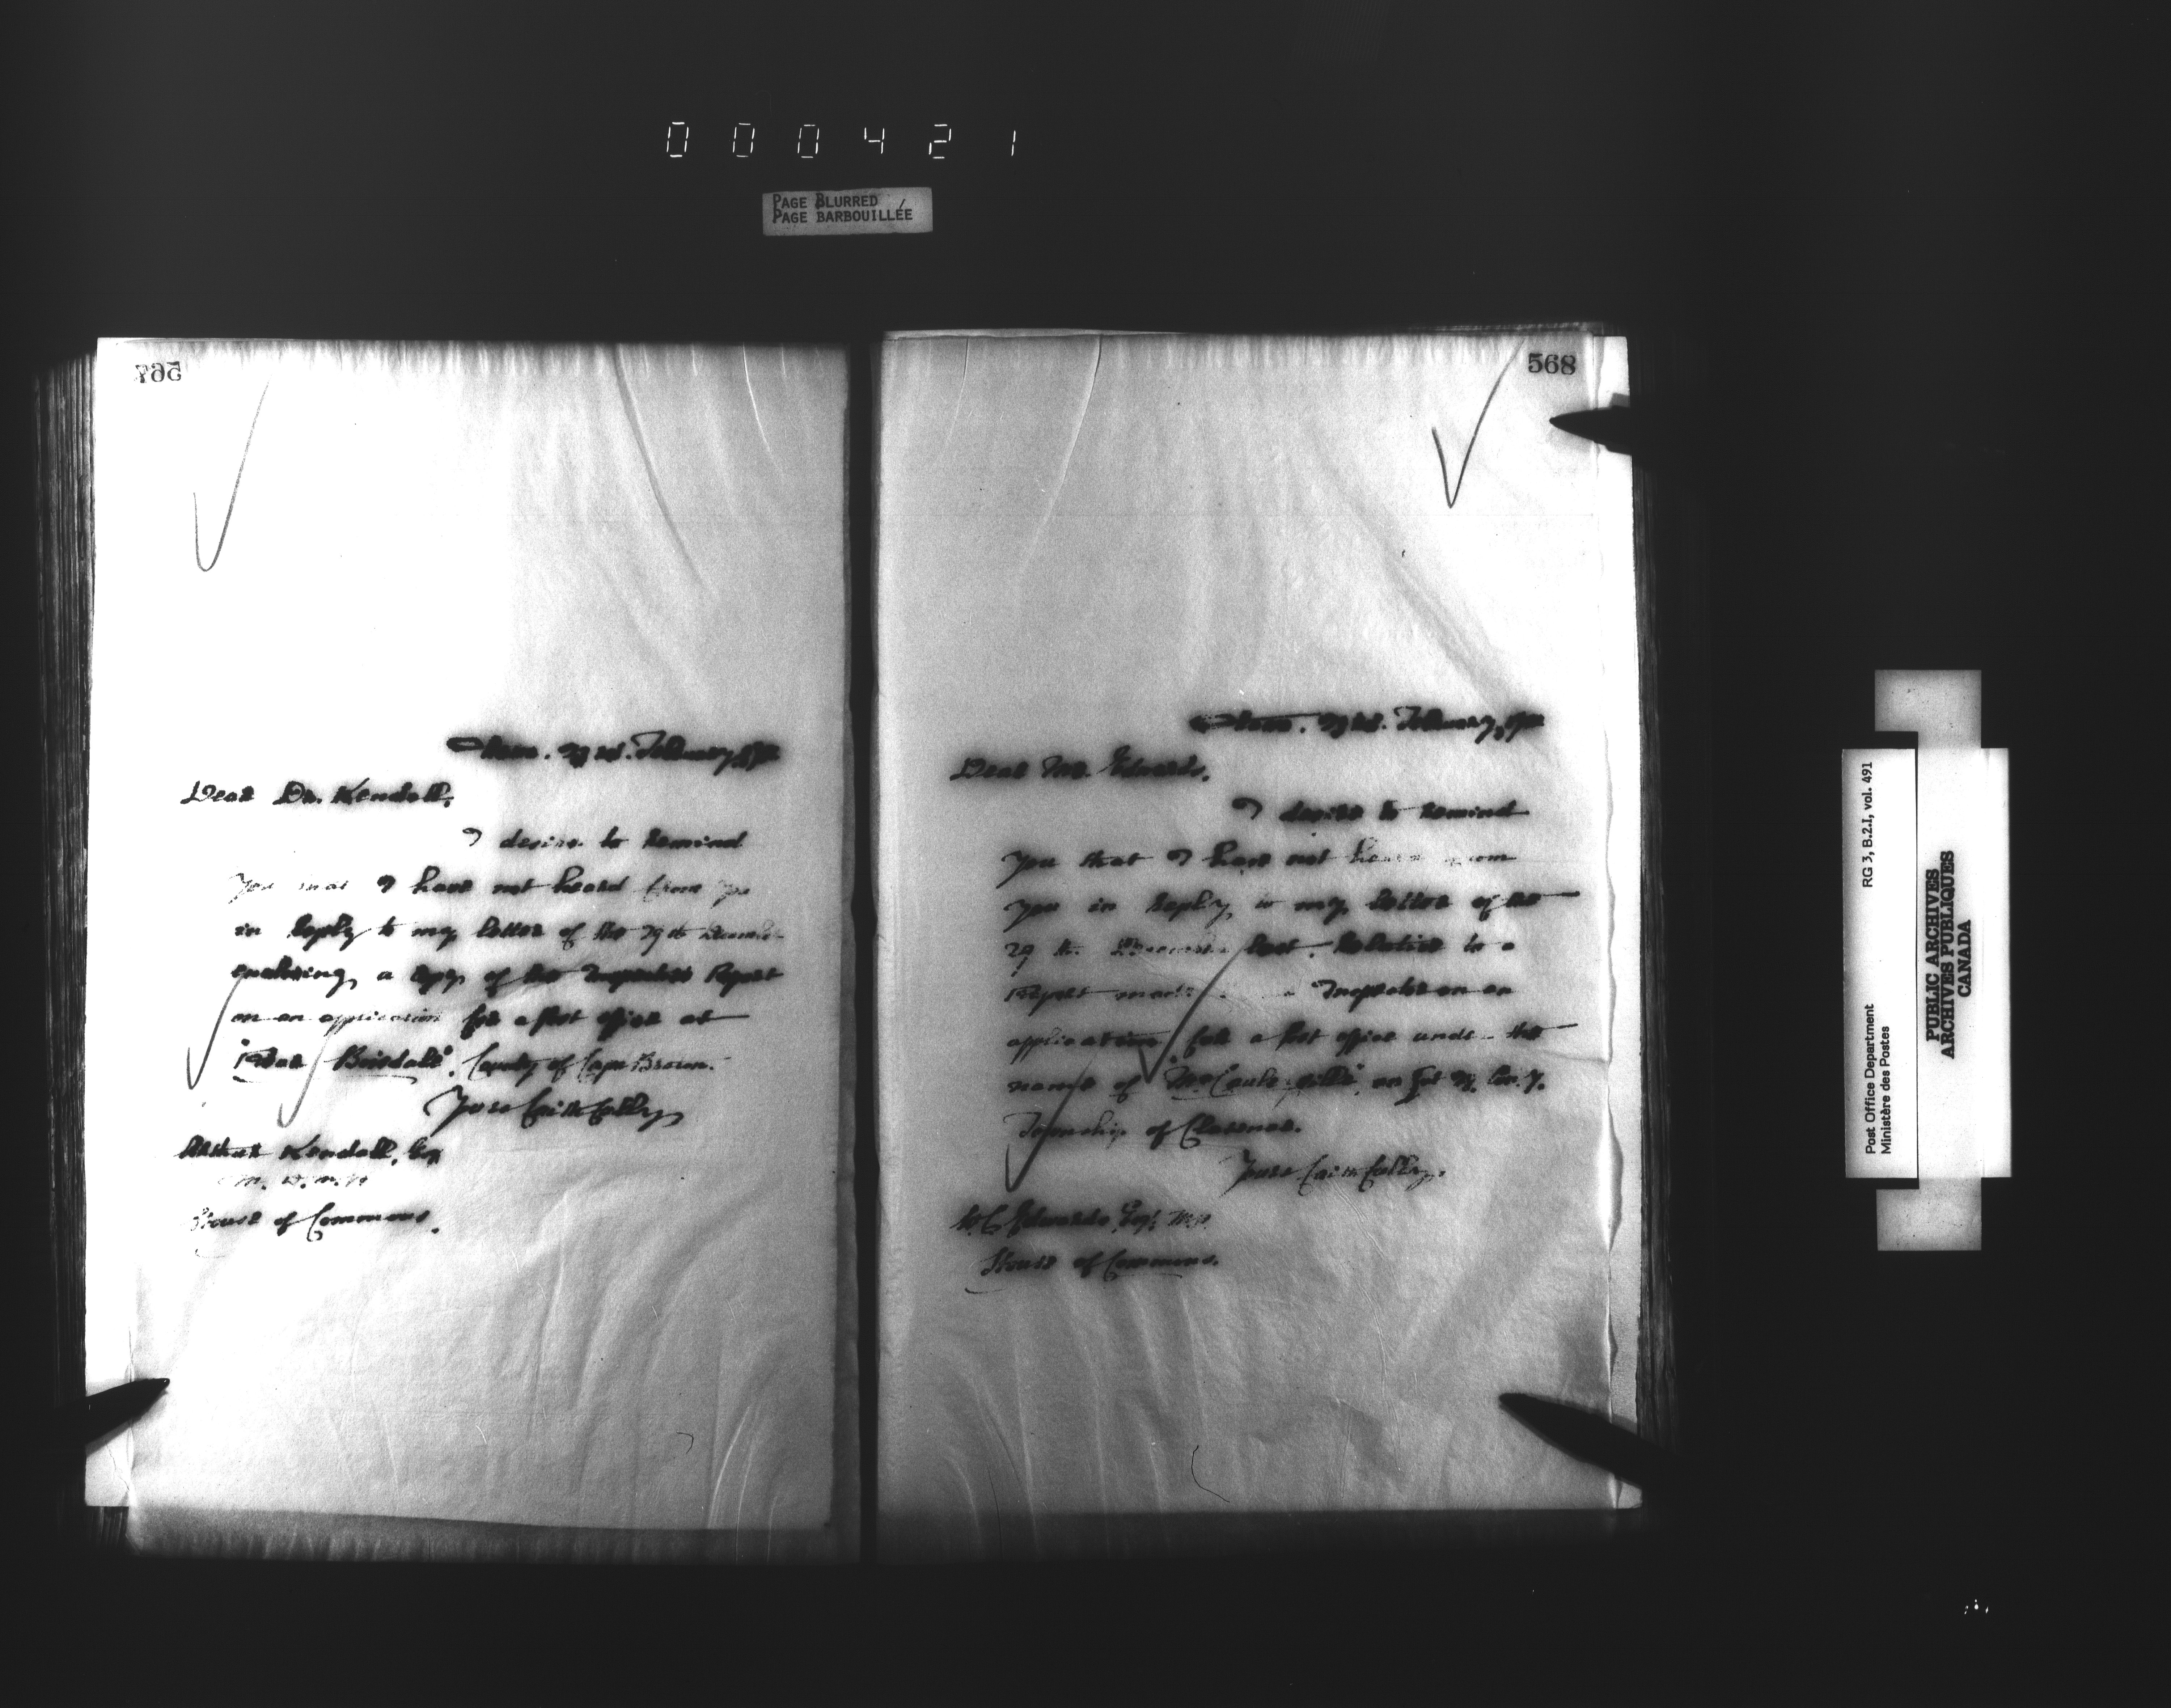 000421
PAGE BLURRED
PAGE BARBOUILLÉE
567
February
Dear Dr. Kendall,
I desire to remind
you that I have not heard from you
in reply to my letter of the 29th December
enclosing a copy of the Inspector's Report
on an application for a Post office at
"Rear Boisdale", County of Cape Breton.
Yours faithfully
Arthur Kendall, Esq
House of Commons.
568
February,
Dear Mr. Edwards,
I desire to remind
you that I have not heard from
you in reply to my letter of the
29th December last, relative to a
Report made Inspector on an
application for a Post office under the
name of on Lot Con. 7.
Township of Clarence.
Yours faithfully.
W. C. Edwards Esq. M.P.
House of Commons.
RG 3, B.2.I, vol. 491
Post Office Department
Ministère des Postes
PUBLIC ARCHIVES
ARCHIVES PUBLIQUES
CANADA